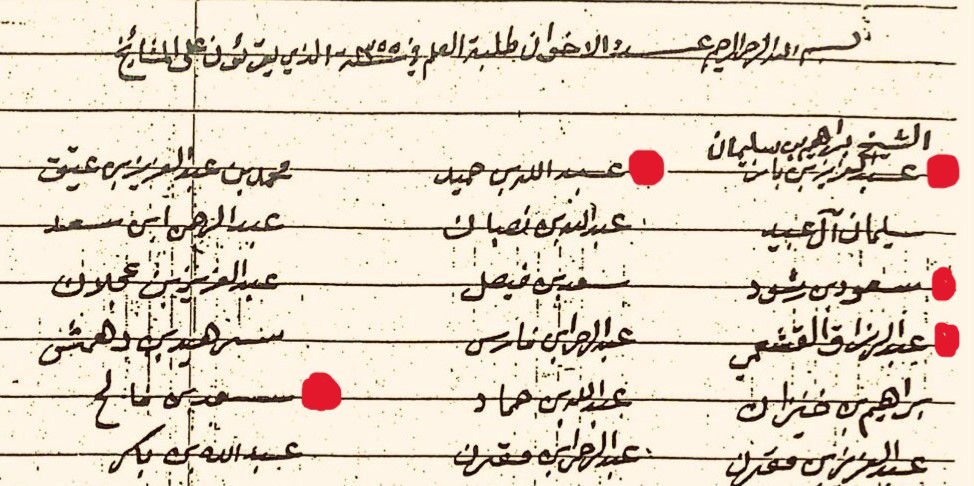 بسم الله الرحمن الرحيم عدد الاخوان طلبة العلم في سنة ١٣٥٥ الذي يقرئون على المشائخ
الشيخ براهيم بن سليمان
عبدالعزيز بن باز عبدالله بن حميد محمد بن عبدالعزيز بن عتيق
سليمان آل عبيد عبدالله بن نصبان عبدالرحمن ابن سعد
سعود بن رشود سعد بن فيصل عبدالعزيز بن عجلان
عبدالرزاق القشعمي عبدالرحمن ابن فارس سند هيد بن دهمش
براهيم بن خنزان عبدالله بن حماد سعد بن فالح
عبدالعزيز بن مقرن عبدالرحمن ابن مقرن عبدالله بن بكر